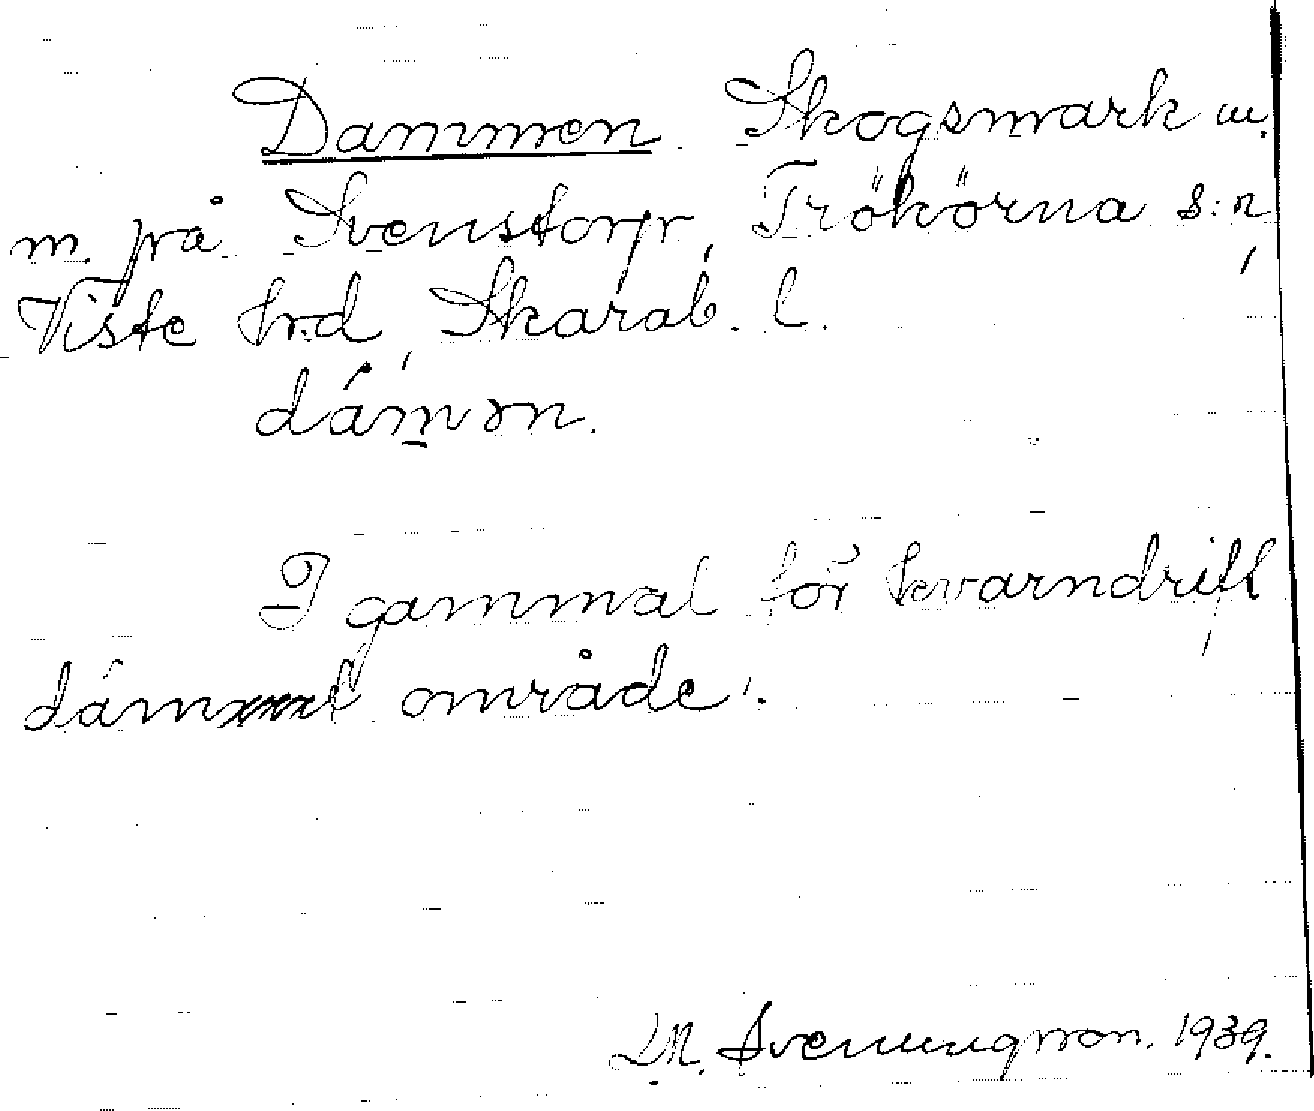 Dammen. Skogsmark m.
m. på Svenstorp, Trökörna s:n,
Viste hrd, Skarab. l.
dámən.
I gammal för kvarndrift
dám området.
Svenungsson. 1939.